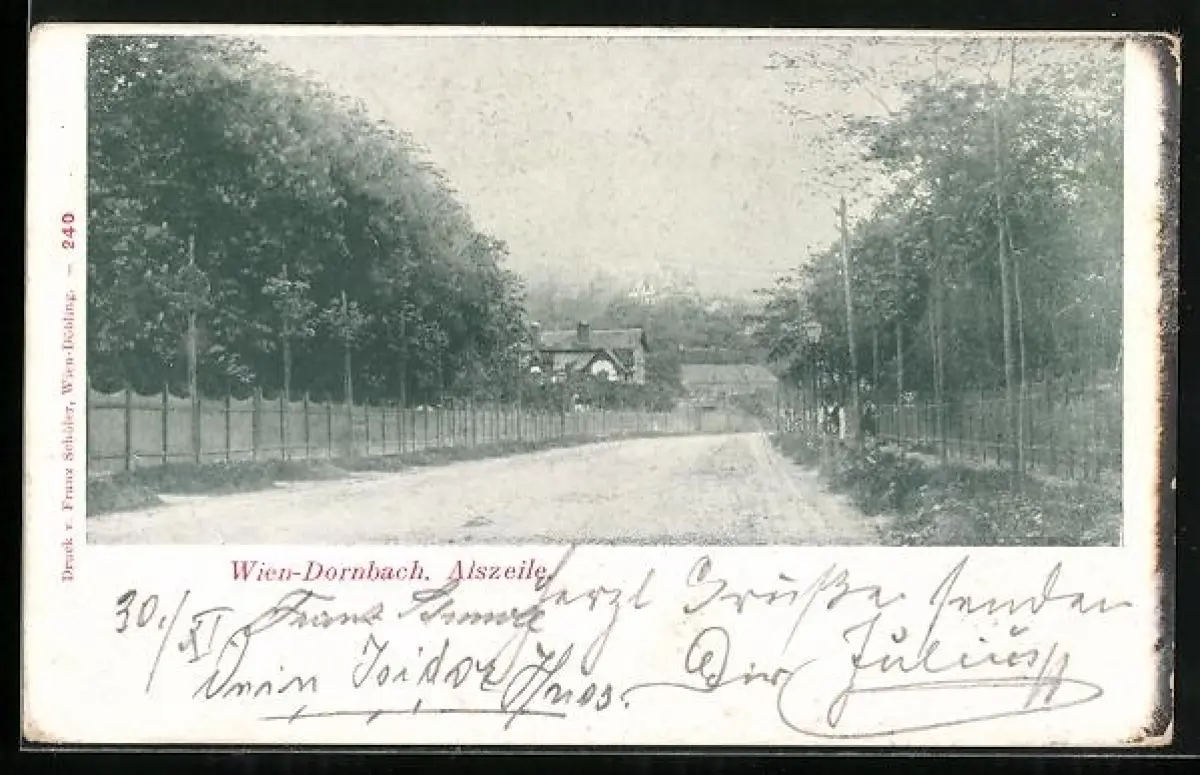 Druck v. Franz Schöler, Wien-Döbling. – 240
Wien-Dornbach. Alszeile.
30./XI. Franz herzl Grüße senden
Isidor Dir Julius